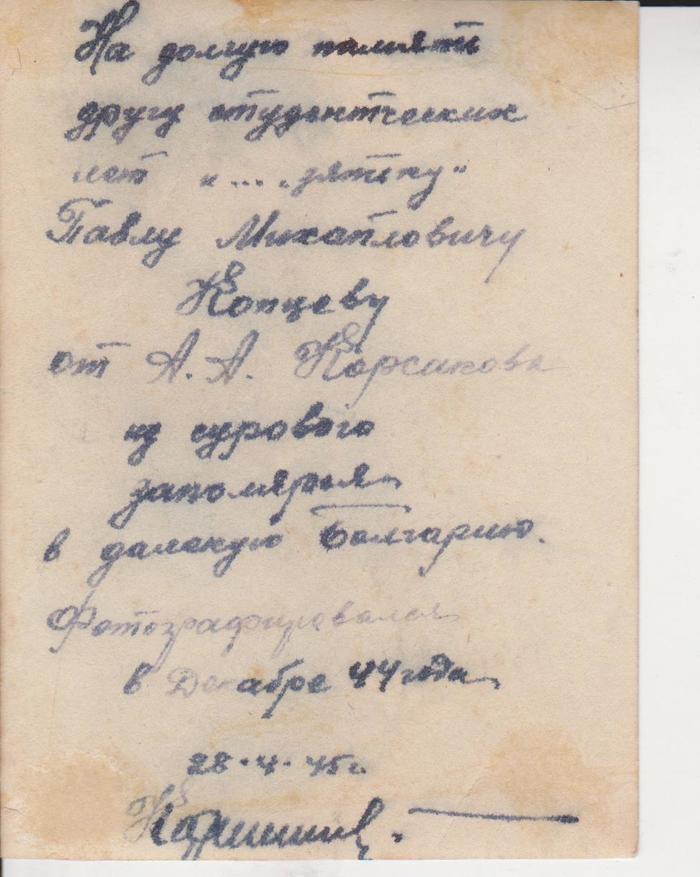 На долгую память
другу студентческих
лет "... зятьку"
Павлу Михайловичу
Копцеву
от А. А. Корсакова
из сурового
заполярья
в далекую Болгарию.
Фотографировался
в Декабре 44 года
28.4.45г.